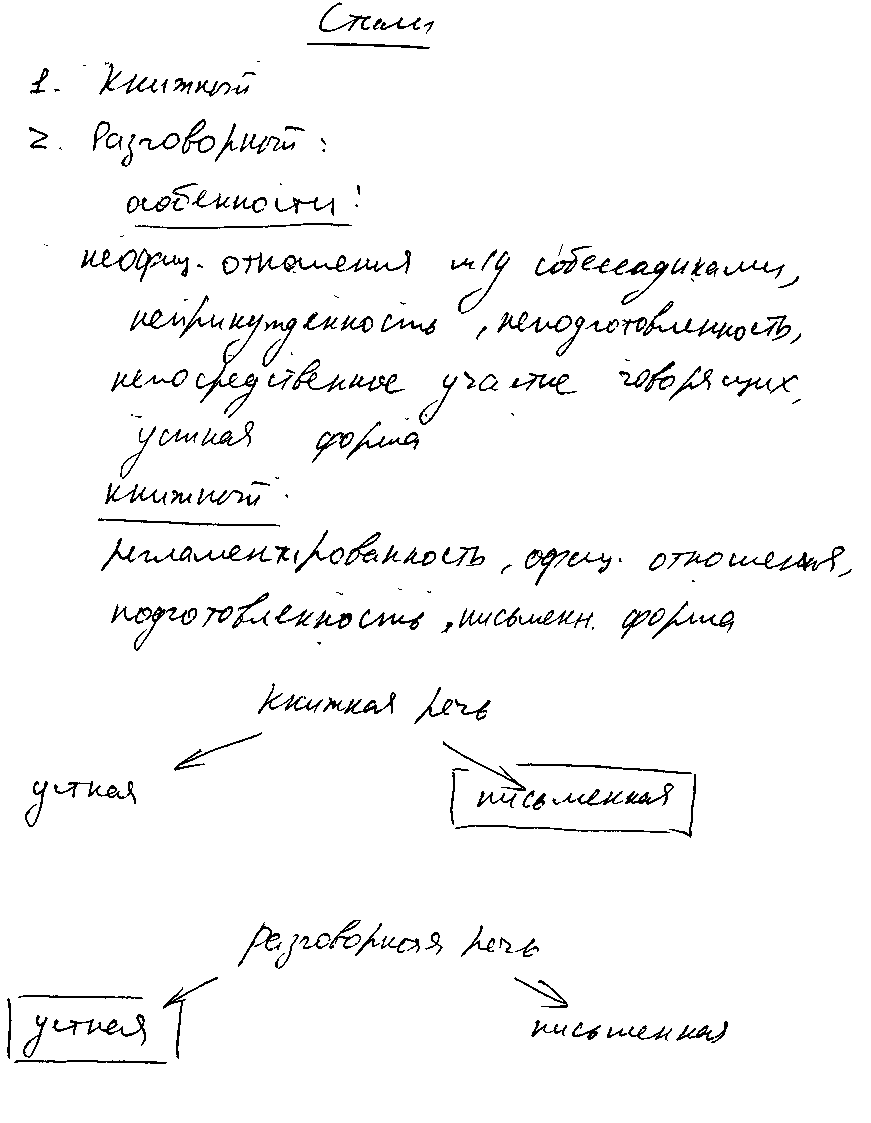 Стили
1. Книжный
2. Разговорный:
особенности:
неофиц. отношения м/д собеседниками,
непринужденность, неподготовленность,
непосредственное участие говорящих,
устная форма
книжный:
регламентированность, офиц. отношения,
подготовленность, письменн. форма
книжная речь
устная письменная
разговорная речь
устная письменная